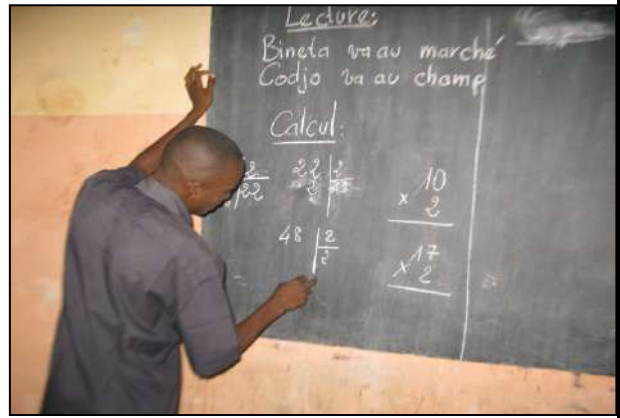 Lecture:
Bineta va au marché
Codjo va au champ
Calcul:
22 2
22
10
x 2
48 2
2
17
x 2